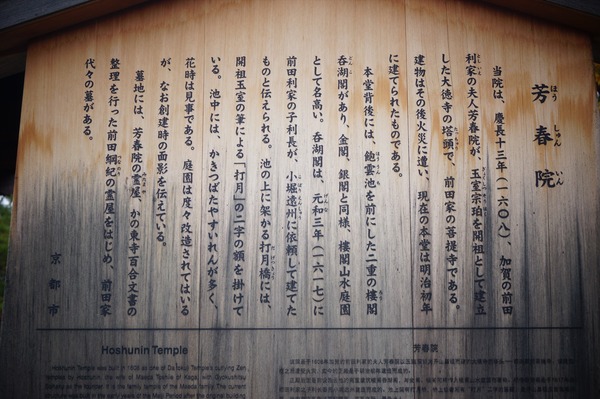 芳春院
ほう しゅん いん
当院は、慶長十三年(一六〇八)、加賀の前田
利家の夫人芳春院が、玉室宗珀を開祖として建立
した大徳寺の塔頭で、前田家の菩提寺である。
建物はその後火災に遭い、現在の本堂は明治初年
に建てられたものである。
本堂背後には、飽雲池を前にした二重の楼閣
呑湖閣があり、金閣、銀閣と同様、楼閣山水庭園
として名高い。呑湖閣は、元和三年(一六一七)に
前田利家の子利長が、小堀遠州に依頼して建てた
ものと伝えられる。池の上に架かる打月橋には、
開祖玉室の筆による「打月」の二字の額を掛けて
いる。池中には、かきつばたやすいれんが多く、
花時は見事である。庭園は度々改造されてはいる
が、なお創建時の面影を伝えている。
墓地には、芳春院の霊屋、かの東寺百合文書の
整理を行った前田綱紀の霊屋をはじめ、前田家
代々の墓がある。
京都市
Hoshunin Temple
Hoshunin Temple was built in 1608 as one of Daitokuji Temple's outlying Zen
temples by Hoshunin, the wife of Maeda Toshiie of Kaga, with Gyokushitsu
芳春院